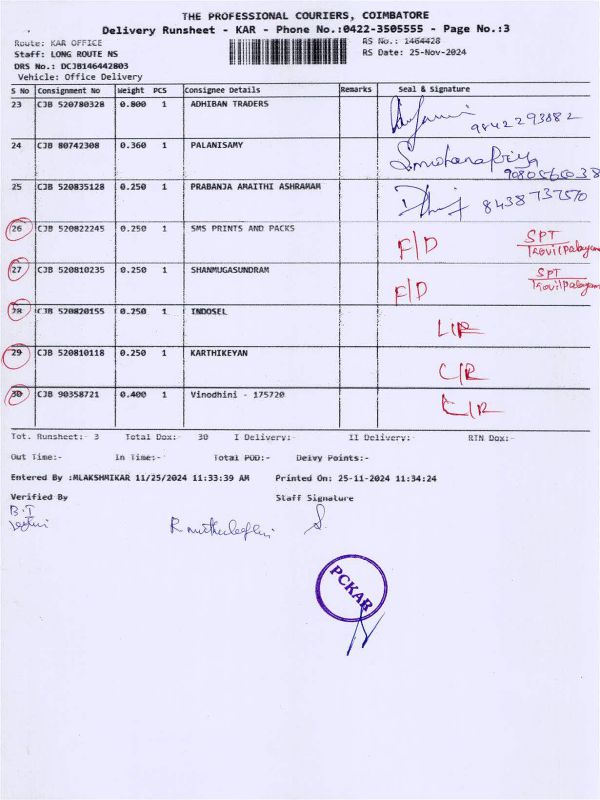 THE PROFESSIONAL COURIERS, COIMBATORE
Delivery Runsheet - KAR - Phone No.:0422-3505555 - Page No.:3
Route: KAR OFFICE RS No.: 1464428
Staff: LONG ROUTE NS RS Date: 25-Nov-2024
DRS No.: DCJB146442803
Vehicle: Office Delivery
S No Consignment No Weight PCS Consignee Details Remarks Seal & Signature
23 CJB 520780328 0.800 1 ADHIBAN TRADERS 9842293882
24 CJB 80742308 0.360 1 PALANISAMY
25 CJB 520835128 0.250 1 PRABANJA AMAITHI ASHRAMAM 8438737570
26 CJB 520822245 0.250 1 SMS PRINTS AND PACKS F/D SPT
27 CJB 520810235 0.250 1 SHANMUGASUNDRAM F/D SPT
28 CJB 520820155 0.250 1 INDOSEL L/R
29 CJB 520810118 0.250 1 KARTHIKEYAN C/R
30 CJB 90358721 0.400 1 Vinodhini - 175720
Tot. Runsheet:- 3 Total Dox:- 30 I Delivery:- II Delivery:- RTN Dox:-
Out Time:- In Time:- Total POD:- Delvy Points:-
Entered By :MLAKSHMIKAR 11/25/2024 11:33:39 AM Printed On: 25-11-2024 11:34:24
Verified By Staff Signature
PCKAB